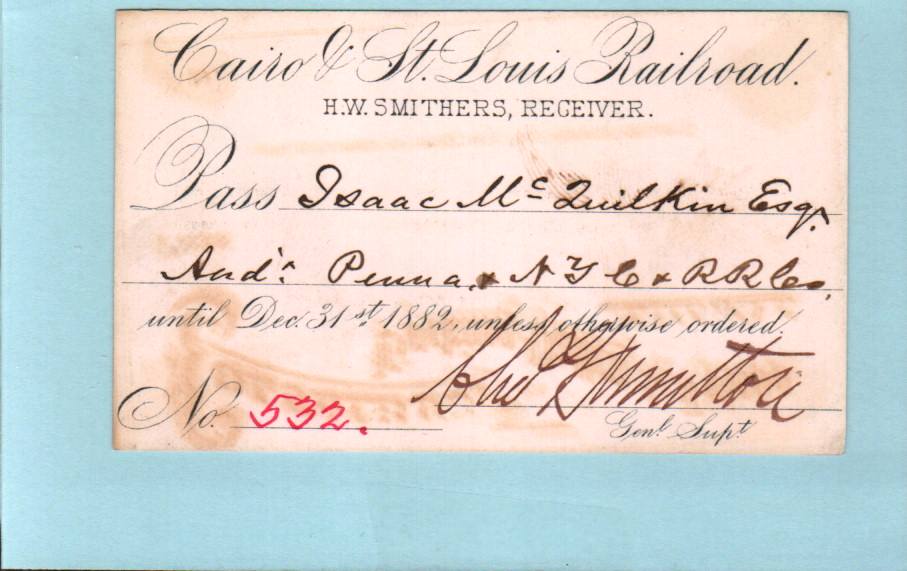 Cairo & St. Louis Railroad.
H.W. SMITHERS, RECEIVER.
Pass Isaac Mc Quilkin Esqr.
Audr. Penna. & N Y C & R R Co.
until Dec. 31st 1882, unless otherwise ordered.
Chas Hamilton
No. 532.
Genl. Supt